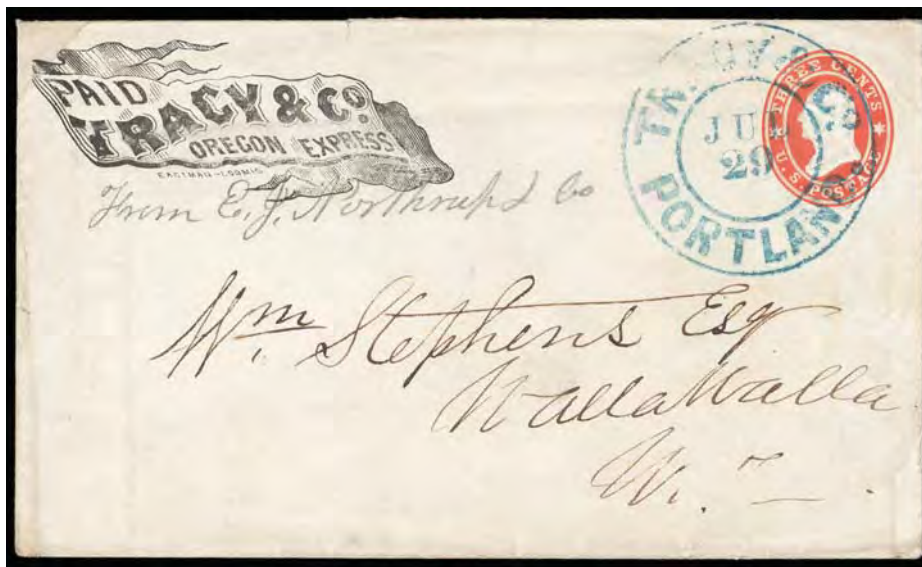 PAID
TRACY & Co.
OREGON EXPRESS
EASTMAN-LOOMIS
From E. J. Northrup & Co
TRACY & CO.
JUL
29
PORTLAND
THREE CENTS
U.S. POSTAGE
Wm Stephens Esq
Walla Walla
W. T.